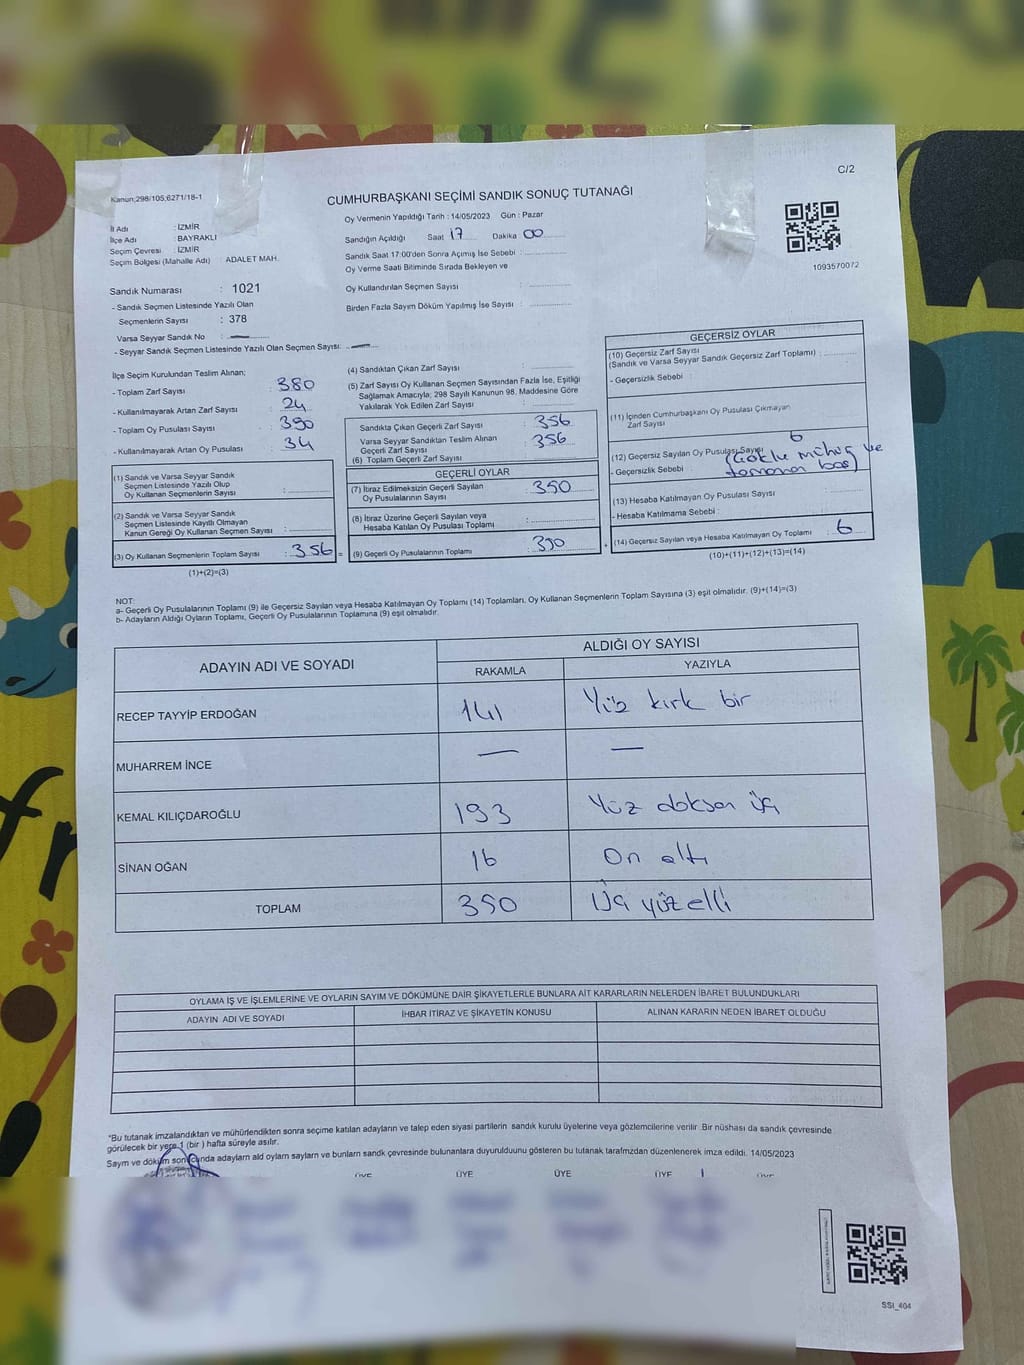 C/2
Kanun;298/105;6271/18-1
CUMHURBAŞKANI SEÇİMİ SANDIK SONUÇ TUTANAĞI
Oy Vermenin Yapıldığı Tarih : 14/05/2023 Gün : Pazar
İl Adı : İZMİR
İlçe Adı : BAYRAKLI
Seçim Çevresi : İZMİR
Seçim Bölgesi (Mahalle Adı) : ADALET MAH.
Sandığın Açıldığı Saat 17 Dakika 00
Sandık Saat 17:00'den Sonra Açımış İse Sebebi :
Oy Verme Saati Bitiminde Sırada Bekleyen ve
Oy Kullandırılan Seçmen Sayısı :
Birden Fazla Sayım Döküm Yapılmış İse Sayısı :
1093570072
Sandık Numarası : 1021
- Sandık Seçmen Listesinde Yazılı Olan
Seçmenlerin Sayısı : 378
Varsa Seyyar Sandık No : —
- Seyyar Sandık Seçmen Listesinde Yazılı Olan Seçmen Sayısı: —
İlçe Seçim Kurulundan Teslim Alınan;
- Toplam Zarf Sayısı : 380
- Kullanılmayarak Artan Zarf Sayısı : 24
- Toplam Oy Pusulası Sayısı : 390
- Kullanılmayarak Artan Oy Pusulası : 34
(1) Sandık ve Varsa Seyyar Sandık
Seçmen Listesinde Yazılı Olup
Oy Kullanan Seçmenlerin Sayısı :
(2) Sandık ve Varsa Seyyar Sandık
Seçmen Listesinde Kayıtlı Olmayan
Kanun Gereği Oy Kullanan Seçmen Sayısı :
(3) Oy Kullanan Seçmenlerin Toplam Sayısı : 356 =
(1)+(2)=(3)
(4) Sandıktan Çıkan Zarf Sayısı :
(5) Zarf Sayısı Oy Kullanan Seçmen Sayısından Fazla İse, Eşitliği
Sağlamak Amacıyla; 298 Sayılı Kanunun 98. Maddesine Göre
Yakılarak Yok Edilen Zarf Sayısı :
Sandıkta Çıkan Geçerli Zarf Sayısı : 356
Varsa Seyyar Sandıktan Teslim Alınan
Geçerli Zarf Sayısı : 356
(6) Toplam Geçerli Zarf Sayısı :
GEÇERLİ OYLAR
(7) İtiraz Edilmeksizin Geçerli Sayılan
Oy Pusulalarının Sayısı : 350
(8) İtiraz Üzerine Geçerli Sayılan veya
Hesaba Katılan Oy Pusulası Toplamı :
(9) Geçerli Oy Pusulalarının Toplamı : 350 +
GEÇERSİZ OYLAR
(10) Geçersiz Zarf Sayısı
(Sandık ve Varsa Seyyar Sandık Geçersiz Zarf Toplamı) :
- Geçersizlik Sebebi :
(11) İçinden Cumhurbaşkanı Oy Pusulası Çıkmayan
Zarf Sayısı :
(12) Geçersiz Sayılan Oy Pusulası Sayısı : 6
- Geçersizlik Sebebi : mühür ve
(13) Hesaba Katılmayan Oy Pusulası Sayısı :
- Hesaba Katılmama Sebebi :
(14) Geçersiz Sayılan veya Hesaba Katılmayan Oy Toplamı : 6
(10)+(11)+(12)+(13)=(14)
NOT:
a- Geçerli Oy Pusulalarının Toplamı (9) ile Geçersiz Sayılan veya Hesaba Katılmayan Oy Toplamı (14) Toplamları, Oy Kullanan Seçmenlerin Toplam Sayısına (3) eşit olmalıdır. (9)+(14)=(3)
b- Adayların Aldığı Oyların Toplamı, Geçerli Oy Pusulalarının Toplamına (9) eşit olmalıdır.
ADAYIN ADI VE SOYADI ALDIĞI OY SAYISI
RAKAMLA YAZIYLA
RECEP TAYYİP ERDOĞAN 141 Yüz kırk bir
MUHARREM İNCE — —
KEMAL KILIÇDAROĞLU 193 Yüz doksan üç
SİNAN OĞAN 16 On altı
TOPLAM 350 Üç yüz elli
OYLAMA İŞ VE İŞLEMLERİNE VE OYLARIN SAYIM VE DÖKÜMÜNE DAİR ŞİKAYETLERLE BUNLARA AİT KARARLARIN NELERDEN İBARET BULUNDUKLARI
ADAYIN ADI VE SOYADI İHBAR İTİRAZ VE ŞİKAYETİN KONUSU ALINAN KARARIN NEDEN İBARET OLDUĞU
*Bu tutanak imzalandıktan ve mühürlendikten sonra seçime katılan adayların ve talep eden siyasi partilerin sandık kurulu üyelerine veya gözlemcilerine verilir. Bir nüshası da sandık çevresinde
görülecek bir yere 1 (bir) hafta süreyle asılır.
Sayım ve döküm sonucunda adayların ald oyların sayların ve bunların sandk çevresinde bulunanlara duyurulduunu gösteren bu tutanak tarafmzdan düzenlenerek imza edildi. 14/05/2023
ÜYE ÜYE ÜYE ÜYE ÜYE
SSI_404